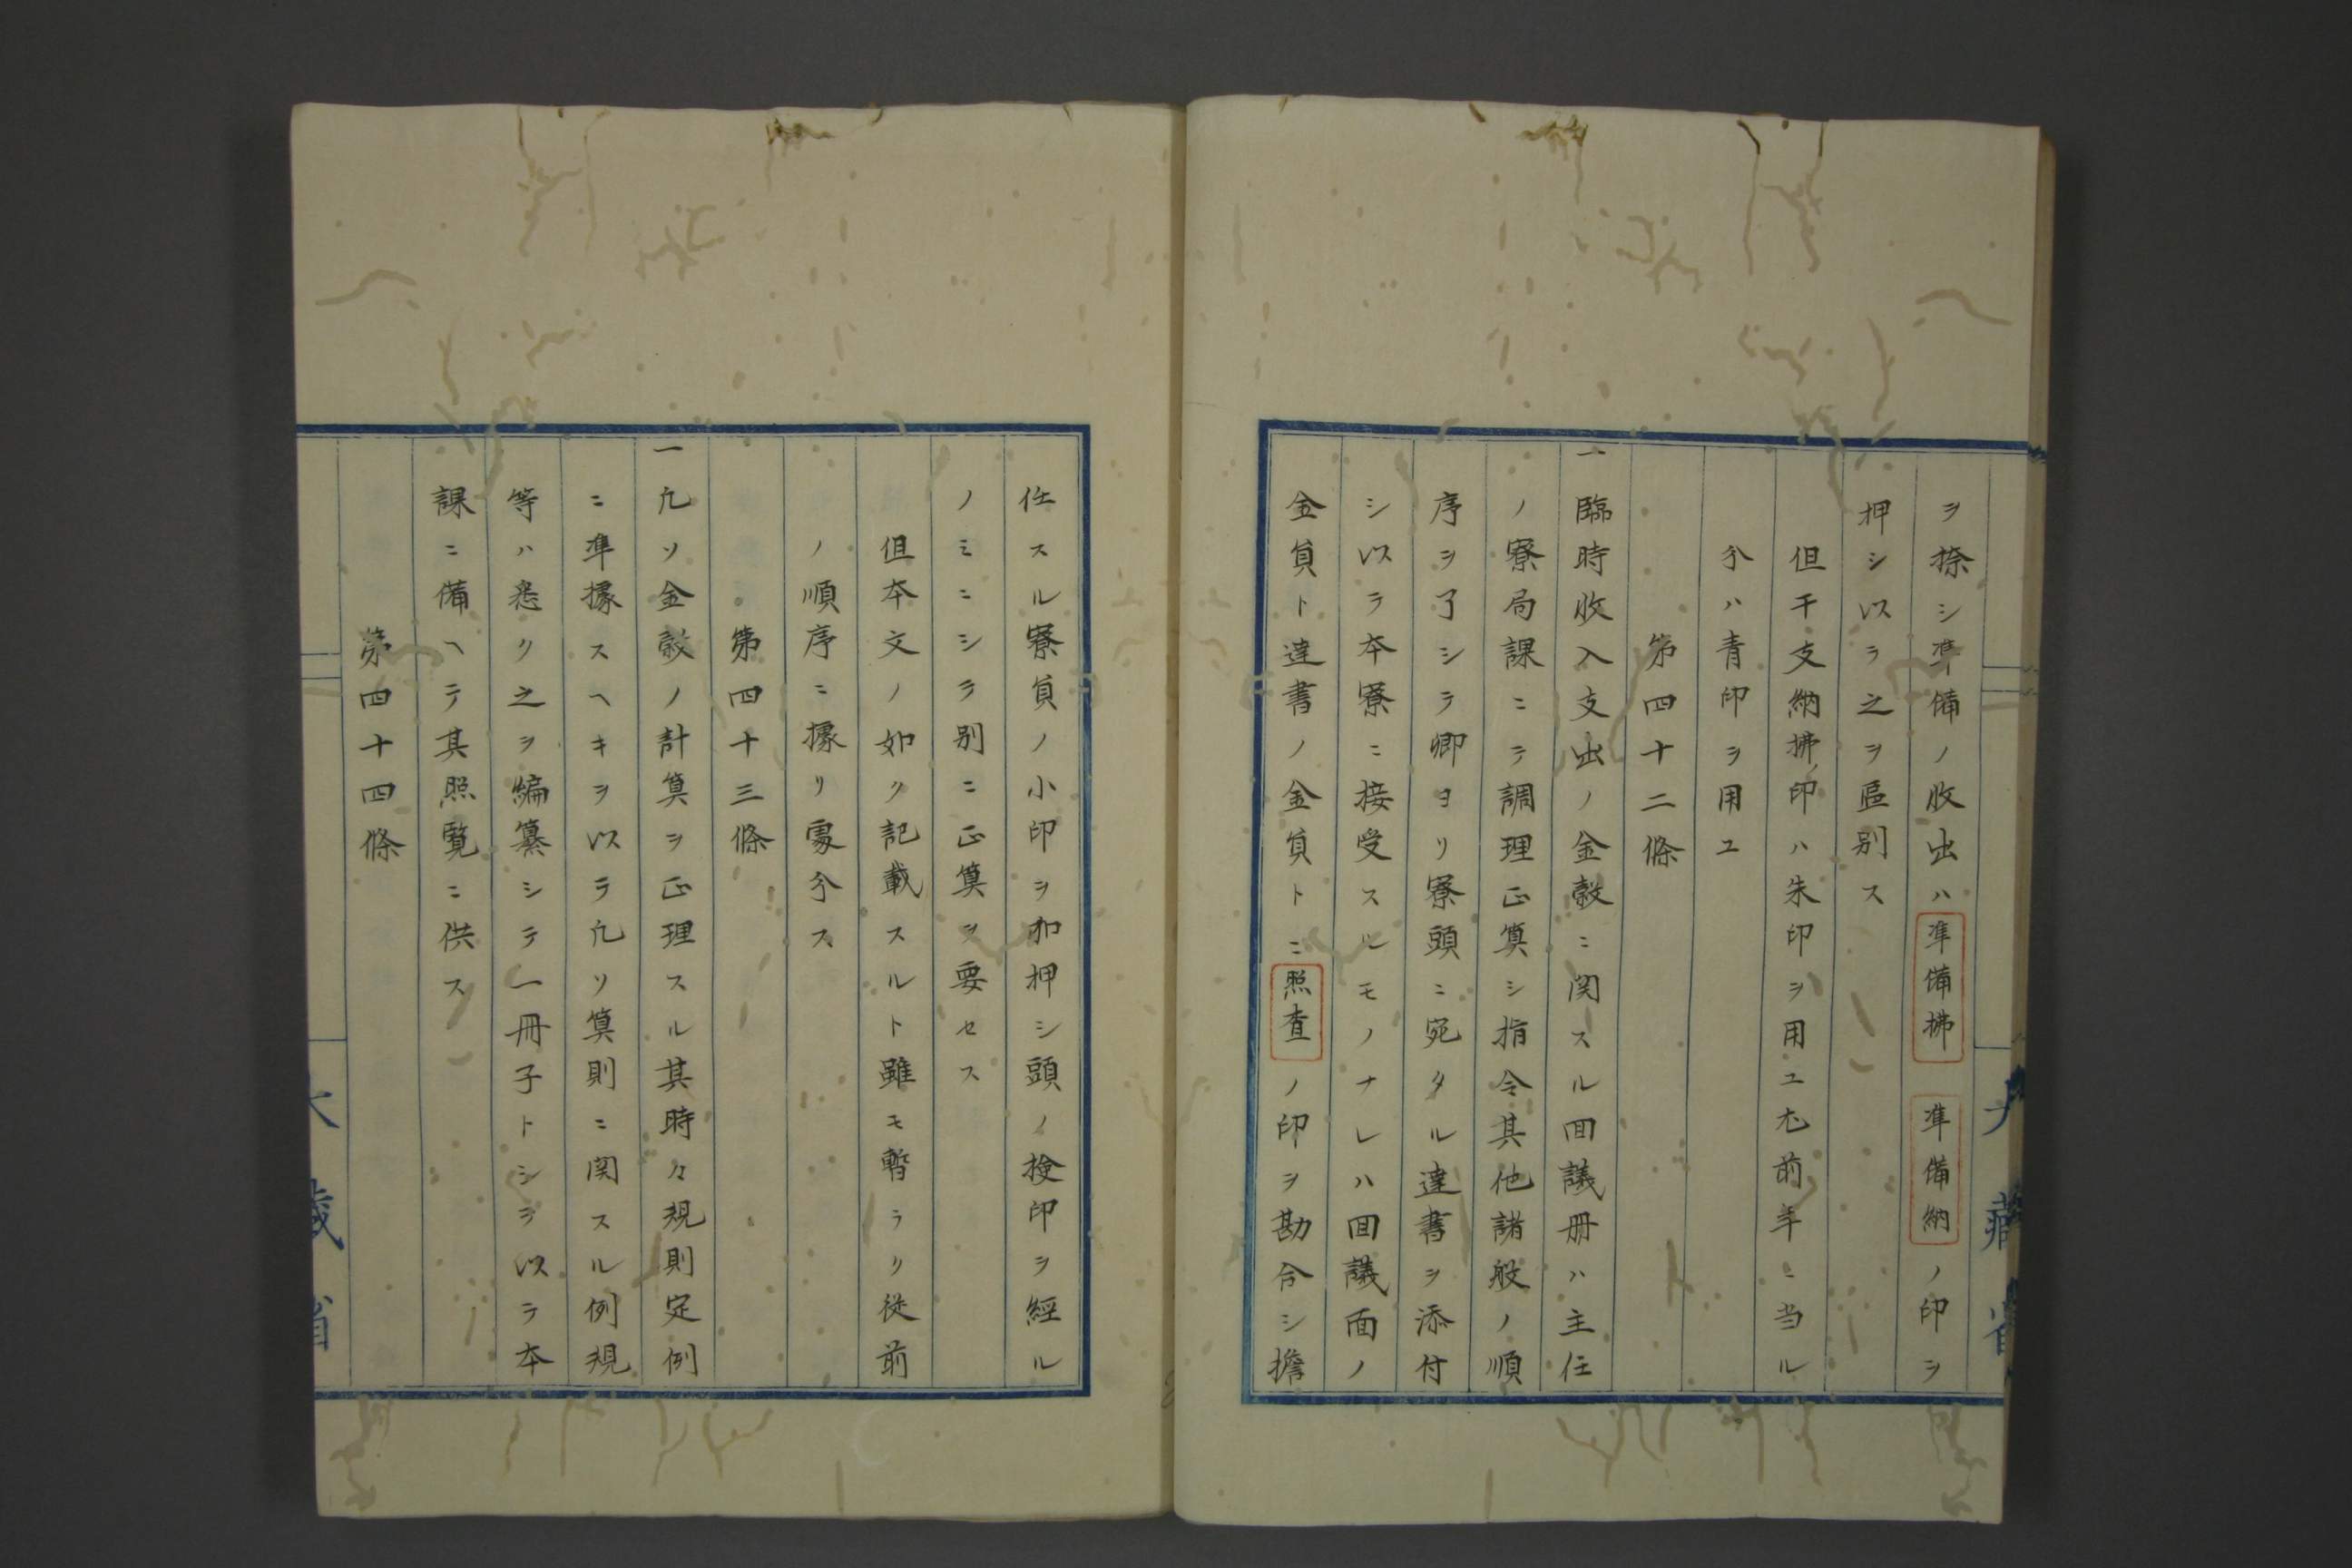 ヲ捺シ準備ノ收出ハ準備拂 準備納ノ印ヲ
押シ以テ之ヲ區别ス
但干支納拂印ハ朱印ヲ用ユ尤前年ニ当ル
分ハ青印ヲ用ユ
第四十二條
一臨時收入支出ノ金穀ニ関スル回議册ハ主任
ノ寮局課ニテ調理正算シ指令其他諸般ノ順
序ヲ了シテ卿ヨリ寮頭ニ宛タル達書ヲ添付
シ以テ本寮ニ接受スルモノナレハ回議面ノ
金員ト達書ノ金員トニ照査ノ印ヲ勘合シ擔
大藏省
任スル寮員ノ小印ヲ加押シ頭ノ撿印ヲ經ル
ノミニシテ别ニ正算ヲ要セス
但本文ノ如ク記載スルト雖モ暫ラク従前
ノ順序ニ據リ處分ス
第四十三條
一凢ソ金穀ノ計算ヲ正理スル其時々規則定例
ニ準據スヘキヲ以テ凢ソ算則ニ関スル例規
等ハ悉ク之ヲ編纂シテ一冊子トシ以テ本
課ニ備ヘテ其照覧ニ供ス
第四十四條
大藏省